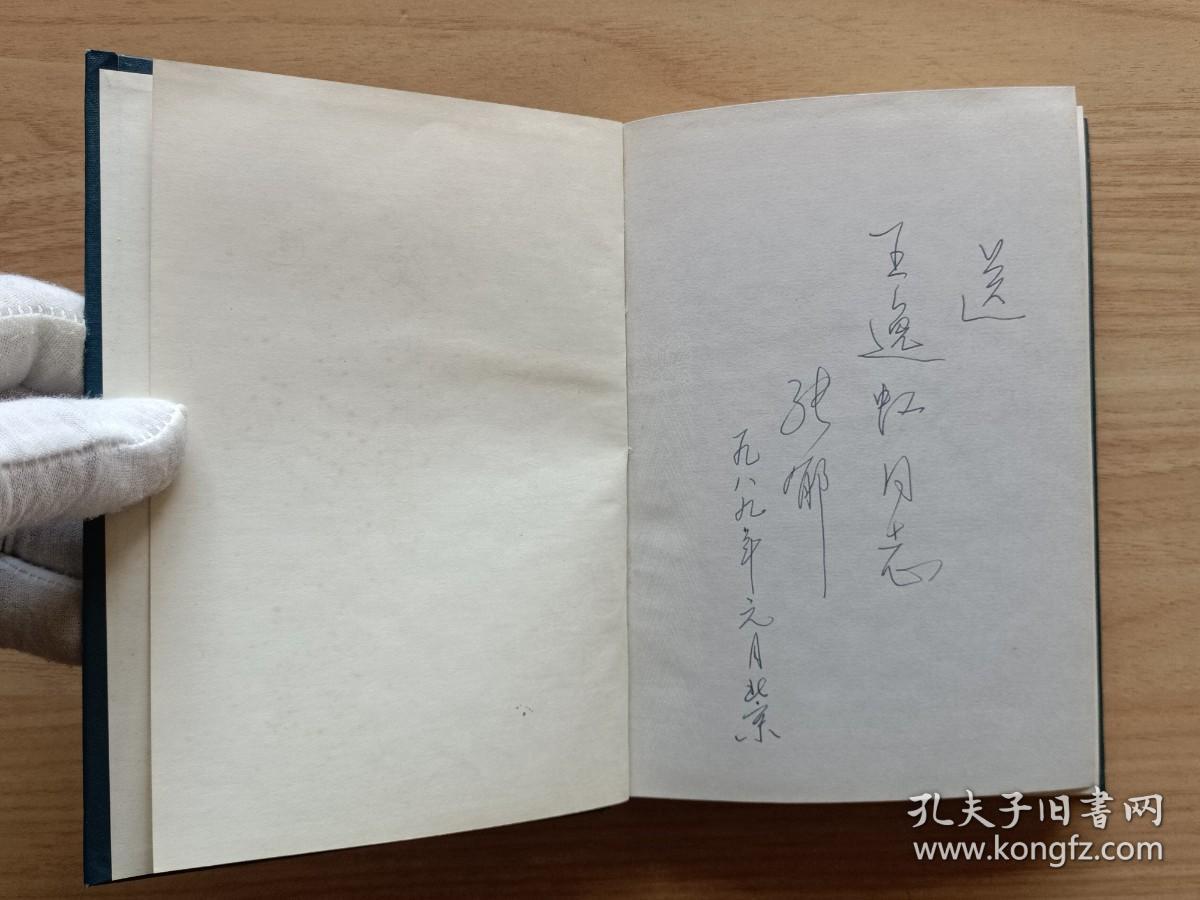 送
王逸虹同志
张郁
九八九年元月北京
孔夫子旧书网
www.kongfz.com